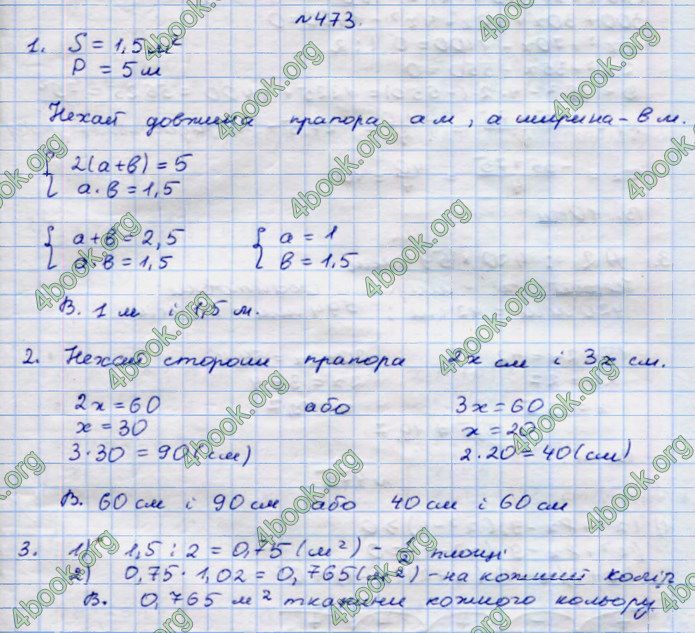 №473.
1. S = 1,5 м²
P = 5 м
Нехай довжина прапора а м, а ширина - в м.
2(а+в) = 5
а·в = 1,5
а+в = 2,5 а = 1
а·в = 1,5 в = 1,5
В. 1 м і 1,5 м.
2. Нехай сторони прапора 2х см і 3х см.
2х = 60 або 3х = 60
х = 30 х = 20
3·30 = 90 (см) 2·20 = 40 (см)
В. 60 см і 90 см або 40 см і 60 см
3. 1) 1,5 : 2 = 0,75 (м²) - 1/2 площі
2) 0,75 · 1,02 = 0,765 (м²) - на кожний колір
В. 0,765 м² тканини кожного кольору
4book.org